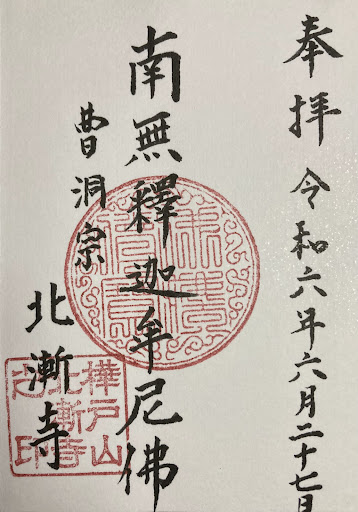 奉拝
令和六年六月二十七日
南無釋迦牟尼佛
曹洞宗
北漸寺
樺戸山
北漸寺
之印